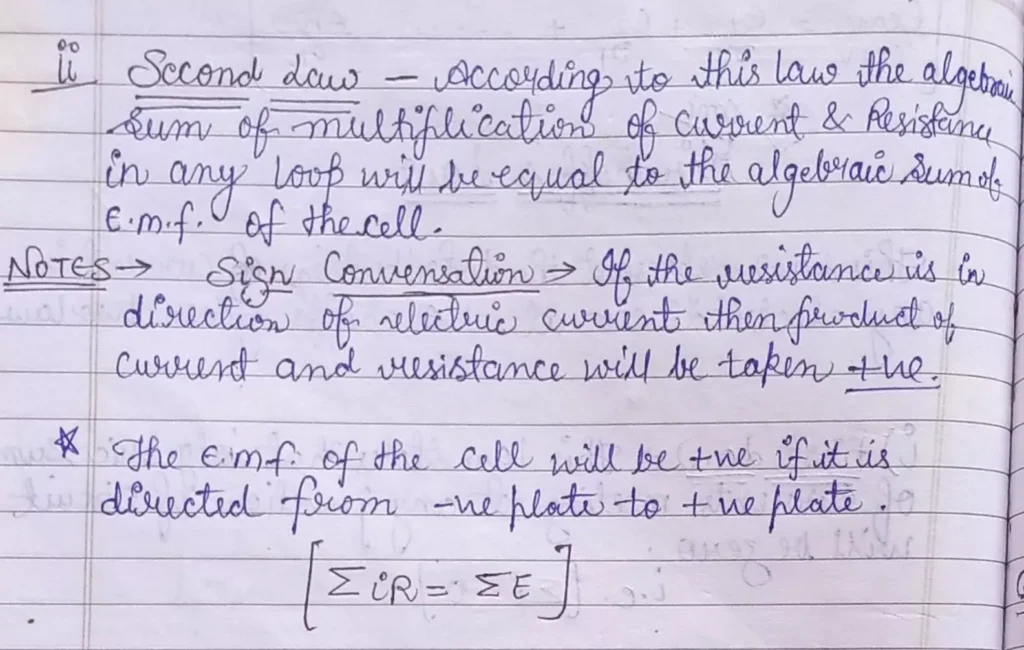 ii Second Law – According to this law the algebraic
sum of multiplication of current & Resistance
in any loop will be equal to the algebraic sum of
E.m.f. of the cell.
NOTES → Sign Convensation → If the resistance is in
direction of electric current then product of
current and resistance will be taken +ve.
☆ The E.m.f. of the cell will be +ve if it is
directed from -ve plate to +ve plate.
[ΣiR = ΣE]